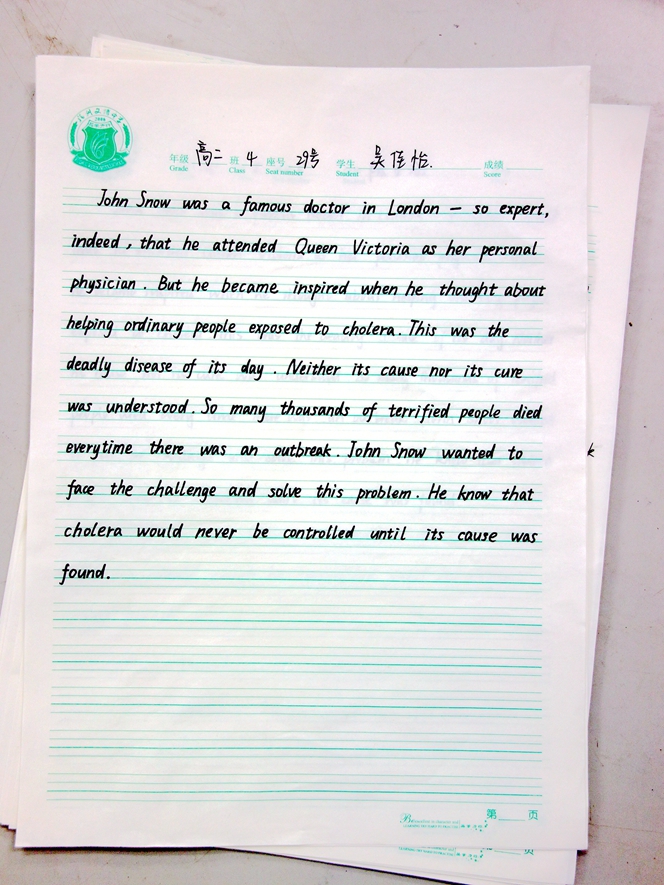 年级 高二 班 4 座号 29号 学生 吴佳怡. 成绩
Grade Class Seat number Student Score
John Snow was a famous doctor in London — so expert,
indeed, that he attended Queen Victoria as her personal
physician. But he became inspired when he thought about
helping ordinary people exposed to cholera. This was the
deadly disease of its day. Neither its cause nor its cure
was understood. So many thousands of terrified people died
everytime there was an outbreak. John Snow wanted to
face the challenge and solve this problem. He know that
cholera would never be controlled until its cause was
found.
第 页
第 页